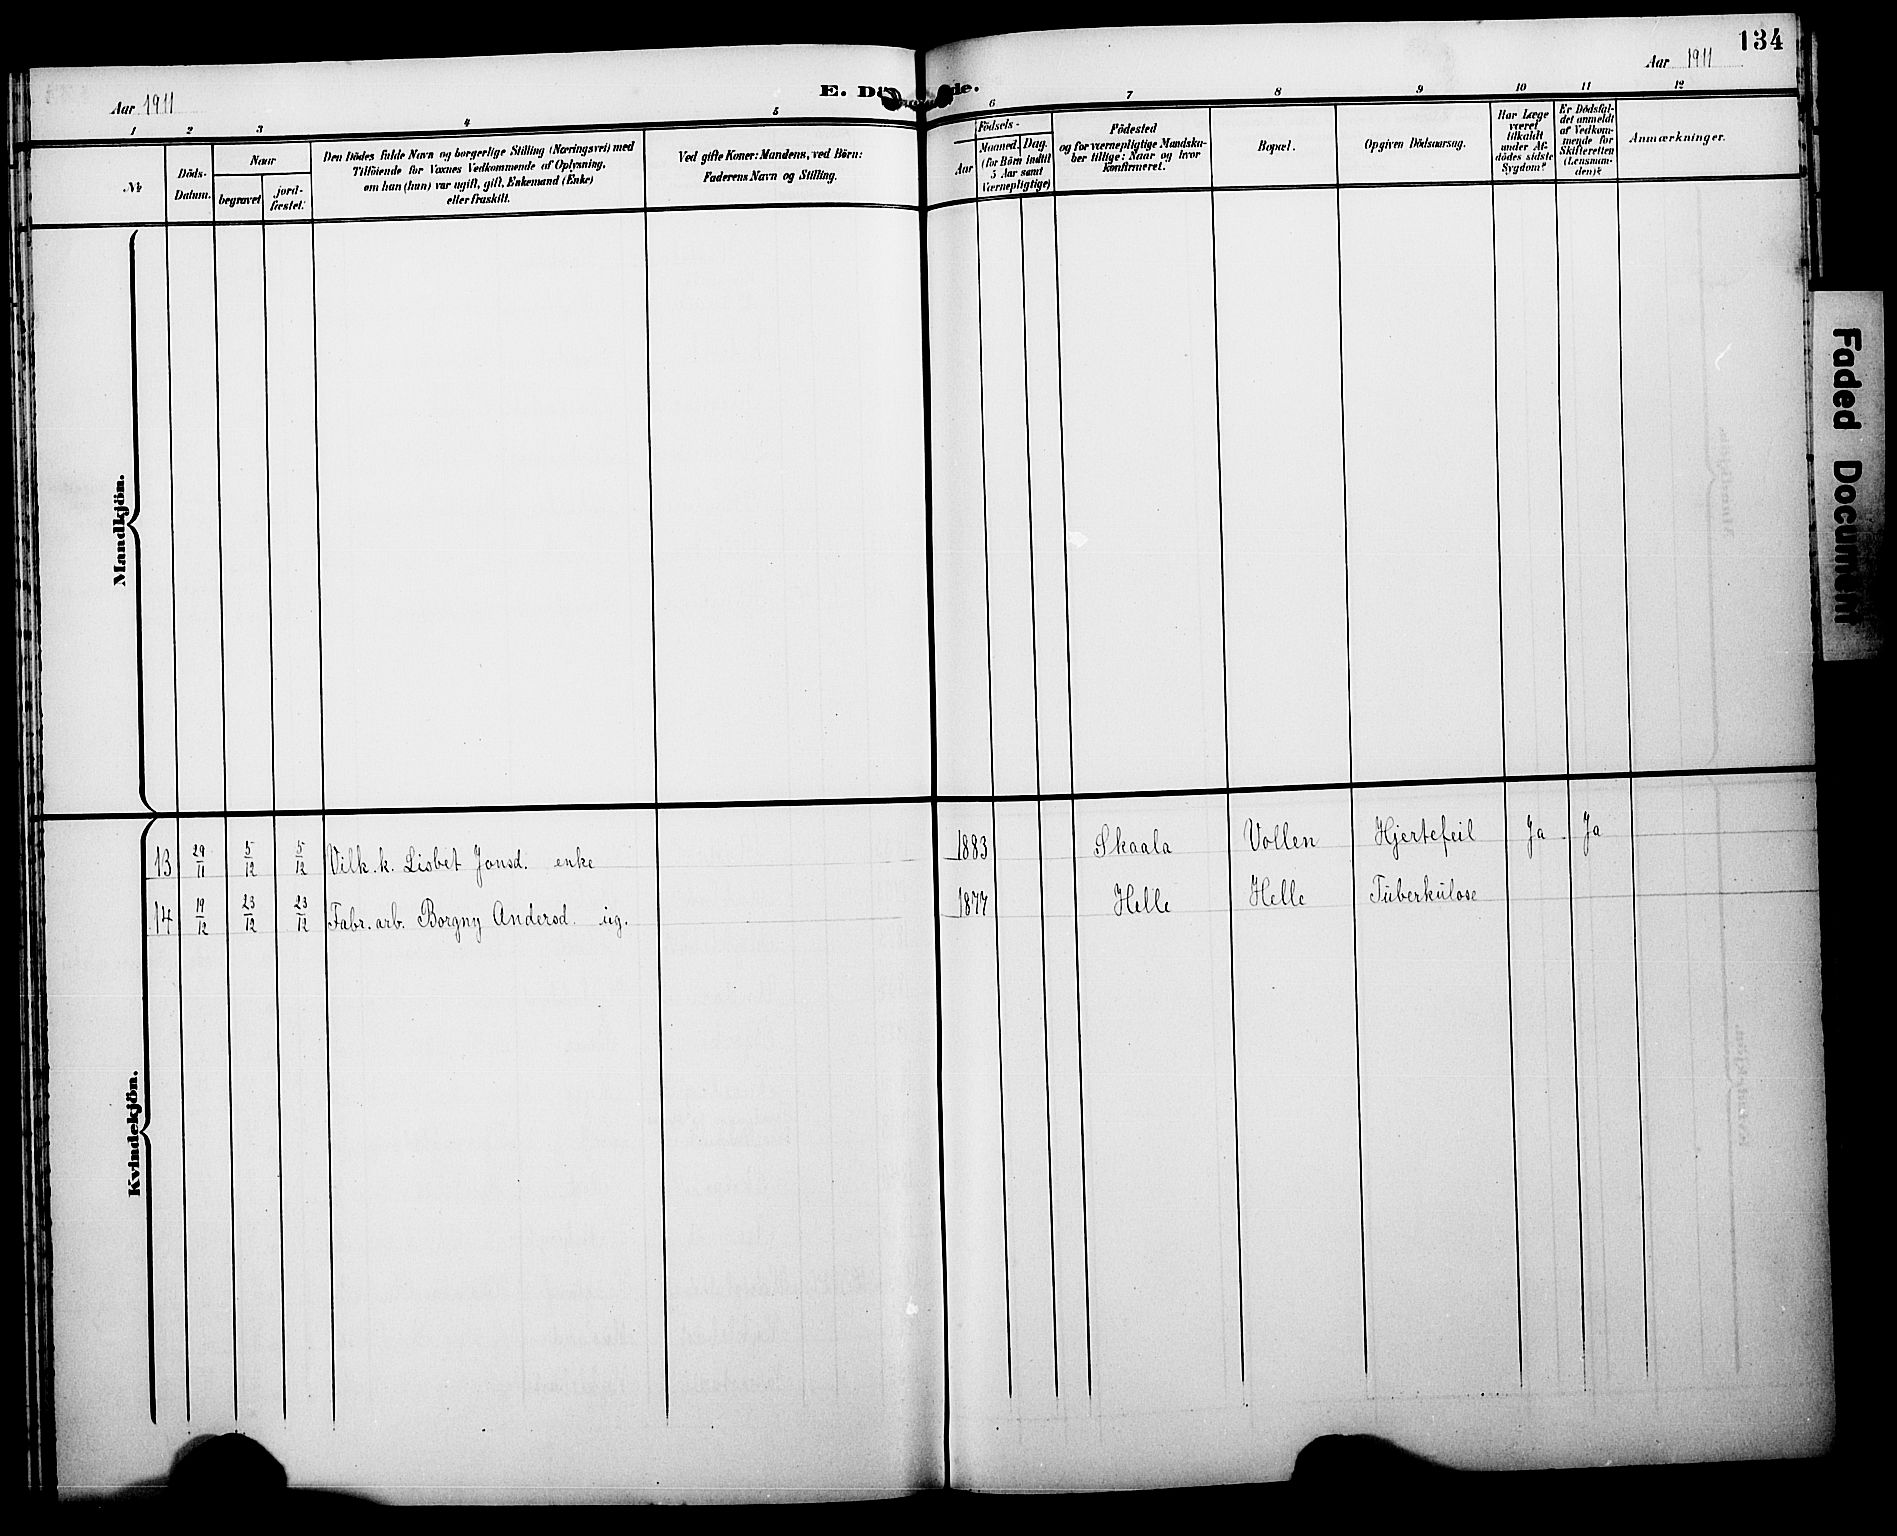 134
Aar 1911
E. Dö de.
Aar 1911
1 2 3 4 5 6 7 8 9 10 11 12
№
Döds-
Datum.
Naar
begravet
jord-
fæstet.
Den Dödes fulde Navn og borgerlige Stilling (Næringsvei) med
Tilföiende for Voxnes Vedkommende af Oplysning,
om han (hun) var ugift, gift, Enkemand (Enke)
eller fraskilt.
Ved gifte Koner: Mandens, ved Börn:
Faderens Navn og Stilling.
Födsels-
Aar
Maaned. Dag.
(for Börn indtil
5 Aar samt
Værnepligtige)
Födested
og for værnepligtige Mandska-
ber tillige: Naar og hvor
konfirmeret.
Bopæl.
Opgiven Dödsaarsag.
Har Læge
været
tilkaldt
under Af-
dödes sidste
Sygdom?
Er Dödsfal-
det anmeldt
af Vedkom-
mende for
Skifteretten
(Lensman-
den)?
Anmærkninger.
Mandkjön.
Kvindekjön.
13 29/11 5/12 5/12 Vilk. k. Lisbet Jonsd. enke 1883 Skaala Vollen Hjertefeil Ja Ja
14 19/12 23/12 23/12 Fabr. arb. Borgny Andersd. ug. 1877 Helle Helle Tuberkulose
Faded Document